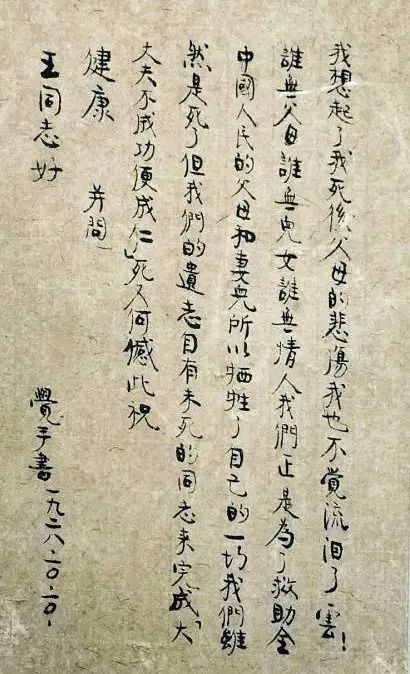 我想起了我死後父母的悲傷我也不覺流泪了雲!
誰無父母誰無兒女誰無情人我們正是為了救助全
中國人民的父母和妻兒所以牺牲了自己的一切我們雖
然是死了但我們的遺志自有未死的同志來完成「大
丈夫不成功便成仁」死又何憾此祝
健康 并問
王同志好
覺手書一九二八.一〇.一〇.